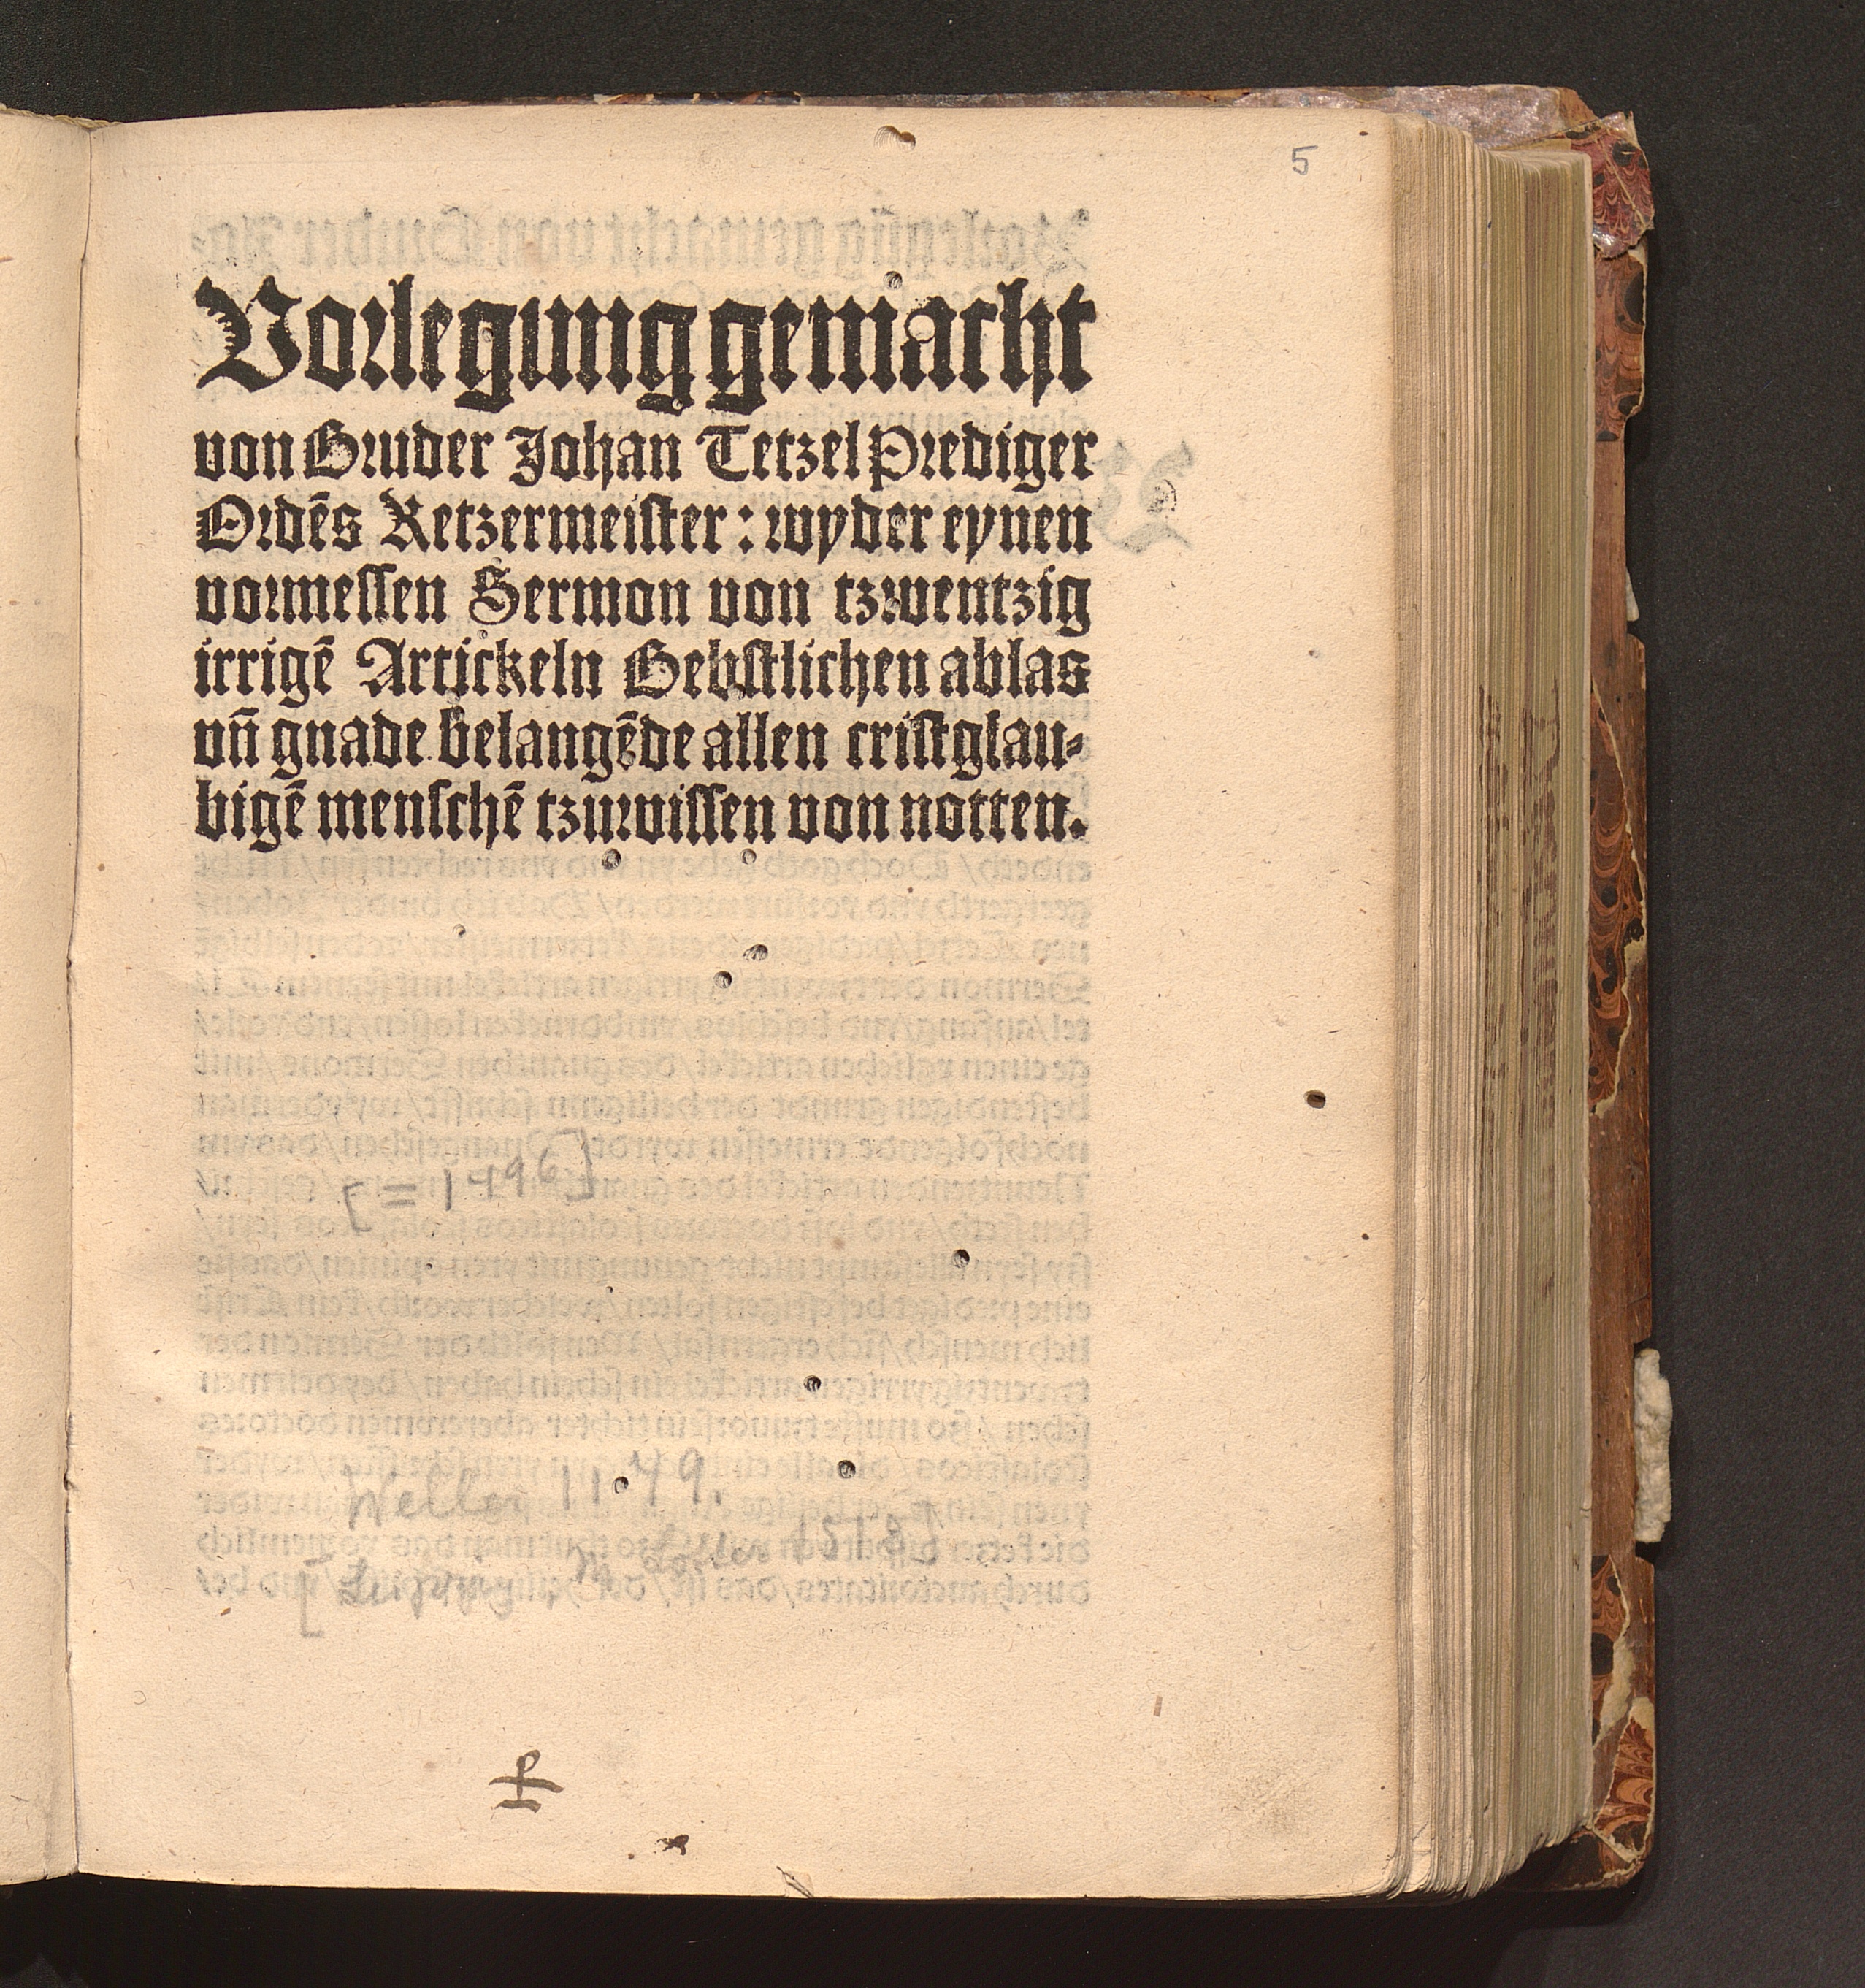 5
Vorlegung gemacht
von Bruder Johan Tetzel Prediger
Ordēs Ketzermeiſter: wyder eynen
vormeſſen Sermon von tzwentzig
irrigē Artickeln Bebſtlichen ablas
vn̄ gnade belangēde allen criſtglau⸗
bigē menſchē tzuwiſſen von notten.
[= 1496]
Weller 1149.
[Leipzig, M. Lotter 1518]